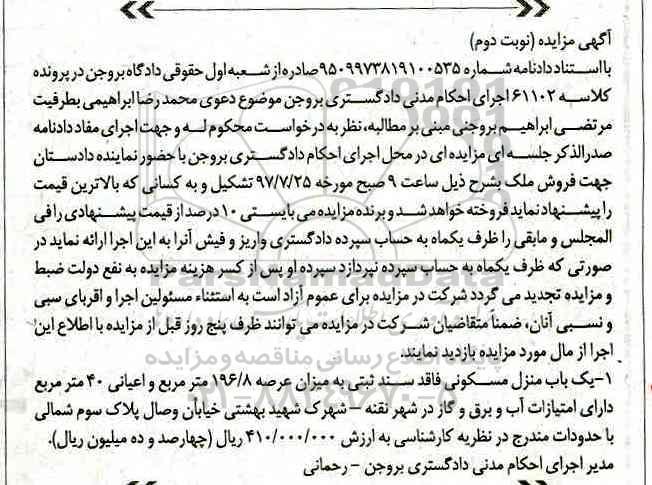 آگهی مزایده (نوبت دوم)
با استناد دادنامه شماره ۹۵۰۹۹۷۳۸۱۹۱۰۰۵۳۵ صادره از شعبه اول حقوقی دادگاه بروجن در پرونده
کلاسه ۶۱۱۰۲ اجرای احکام مدنی دادگستری بروجن موضوع دعوی محمد رضا ابراهیمی بطرفیت
مرتضی ابراهیم بروجنی مبنی بر مطالبه، نظر به درخواست محکوم له و جهت اجرای مفاد دادنامه
صدرالذکر جلسه ای مزایده ای در محل اجرای احکام دادگستری بروجن با حضور نماینده دادستان
جهت فروش ملک بشرح ذیل ساعت ۹ صبح مورخه ۹۷/۷/۲۵ تشکیل و به کسانی که بالاترین قیمت
را پیشنهاد نماید فروخته خواهد شد و برنده مزایده می بایستی ۱۰ درصد از قیمت پیشنهادی را فی
المجلس و مابقی را ظرف یکماه به حساب سپرده دادگستری واریز و فیش آنرا به این اجرا ارائه نماید در
صورتی که ظرف یکماه به حساب سپرده نپردازد سپرده او پس از کسر هزینه مزایده به نفع دولت ضبط
و مزایده تجدید می گردد شرکت در مزایده برای عموم آزاد است به استثناء مسئولین اجرا و اقربای سببی
و نسبی آنان، ضمناً متقاضیان شرکت در مزایده می توانند ظرف پنج روز قبل از مزایده با اطلاع این
اجرا از مال مورد مزایده بازدید نمایند.
۱-یک باب منزل مسکونی فاقد سند ثبتی به میزان عرصه ۱۹۶/۸ متر مربع و اعیانی ۴۰ متر مربع
دارای امتیازات آب و برق و گاز در شهر نقنه – شهرک شهید بهشتی خیابان وصال پلاک سوم شمالی
با حدودات مندرج در نظریه کارشناسی به ارزش ۴۱۰/۰۰۰/۰۰۰ ریال (چهارصد و ده میلیون ریال).
مدیر اجرای احکام مدنی دادگستری بروجن – رحمانی
ParsNamadData
پایگاه اطلاع رسانی مناقصه و مزایده
۰۲۱-۸۸۳۴۹۶۷۰-۵